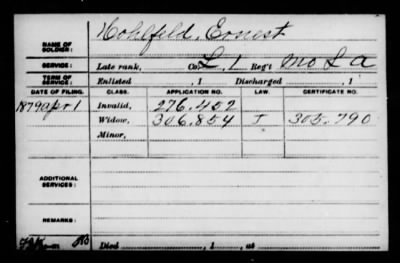 Hohlfeld, Ernest
NAME OF SOLDIER:
SERVICE: Late rank, Co. L, 1 Reg't Mo L A
TERM OF SERVICE: Enlisted , 1 Discharged , 1
DATE OF FILING. CLASS. APPLICATION NO. LAW. CERTIFICATE NO.
1879 Apr 1 Invalid, 276.452
Widow, 306.854 J 305.790
Minor,
ADDITIONAL SERVICES:
REMARKS:
Died , 1 , at